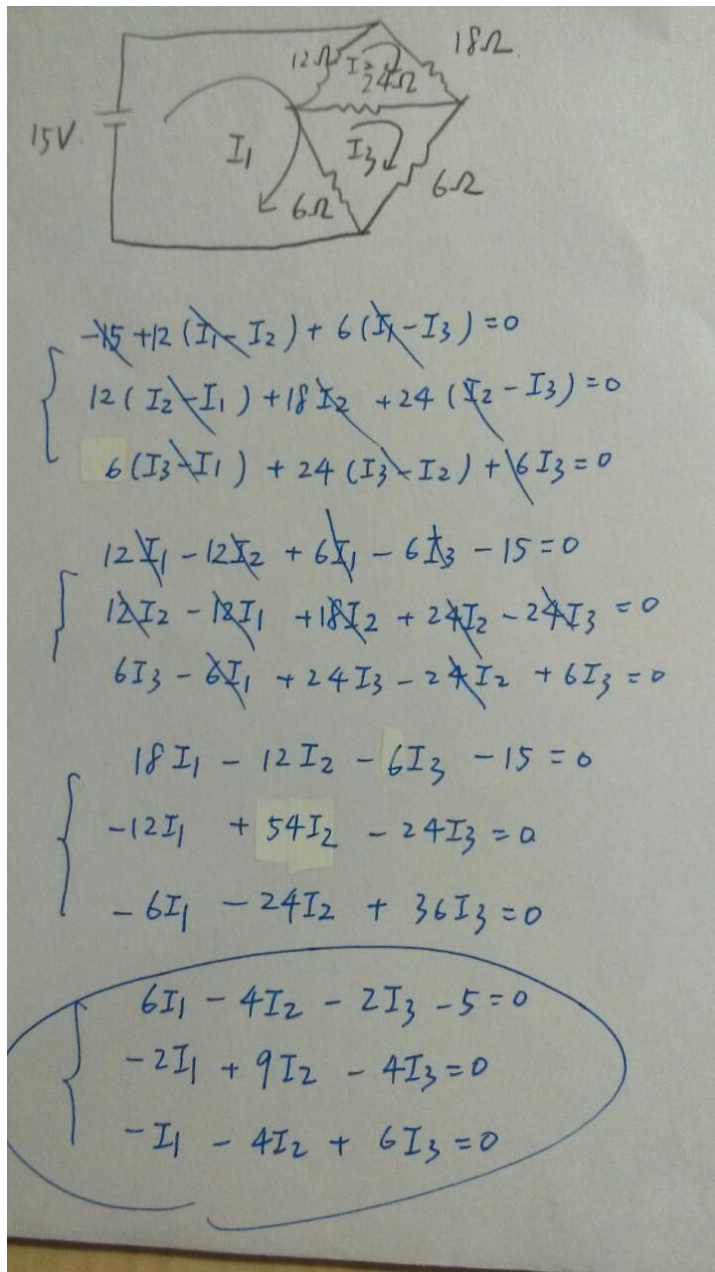 12Ω I2 18Ω
24Ω
15V I1 I3
6Ω 6Ω
-15 +12 (I1 - I2) + 6 (I1 - I3) = 0
12 ( I2 - I1 ) + 18 I2 + 24 (I2 - I3) = 0
6 (I3 - I1 ) + 24 (I3 - I2) + 6 I3 = 0
12 I1 - 12 I2 + 6 I1 - 6 I3 - 15 = 0
12 I2 - 12 I1 + 18 I2 + 24 I2 - 24 I3 = 0
6 I3 - 6 I1 + 24 I3 - 24 I2 + 6 I3 = 0
18 I1 - 12 I2 - 6 I3 - 15 = 0
-12 I1 + 54 I2 - 24 I3 = 0
- 6 I1 - 24 I2 + 36 I3 = 0
6 I1 - 4 I2 - 2 I3 - 5 = 0
- 2 I1 + 9 I2 - 4 I3 = 0
- I1 - 4 I2 + 6 I3 = 0